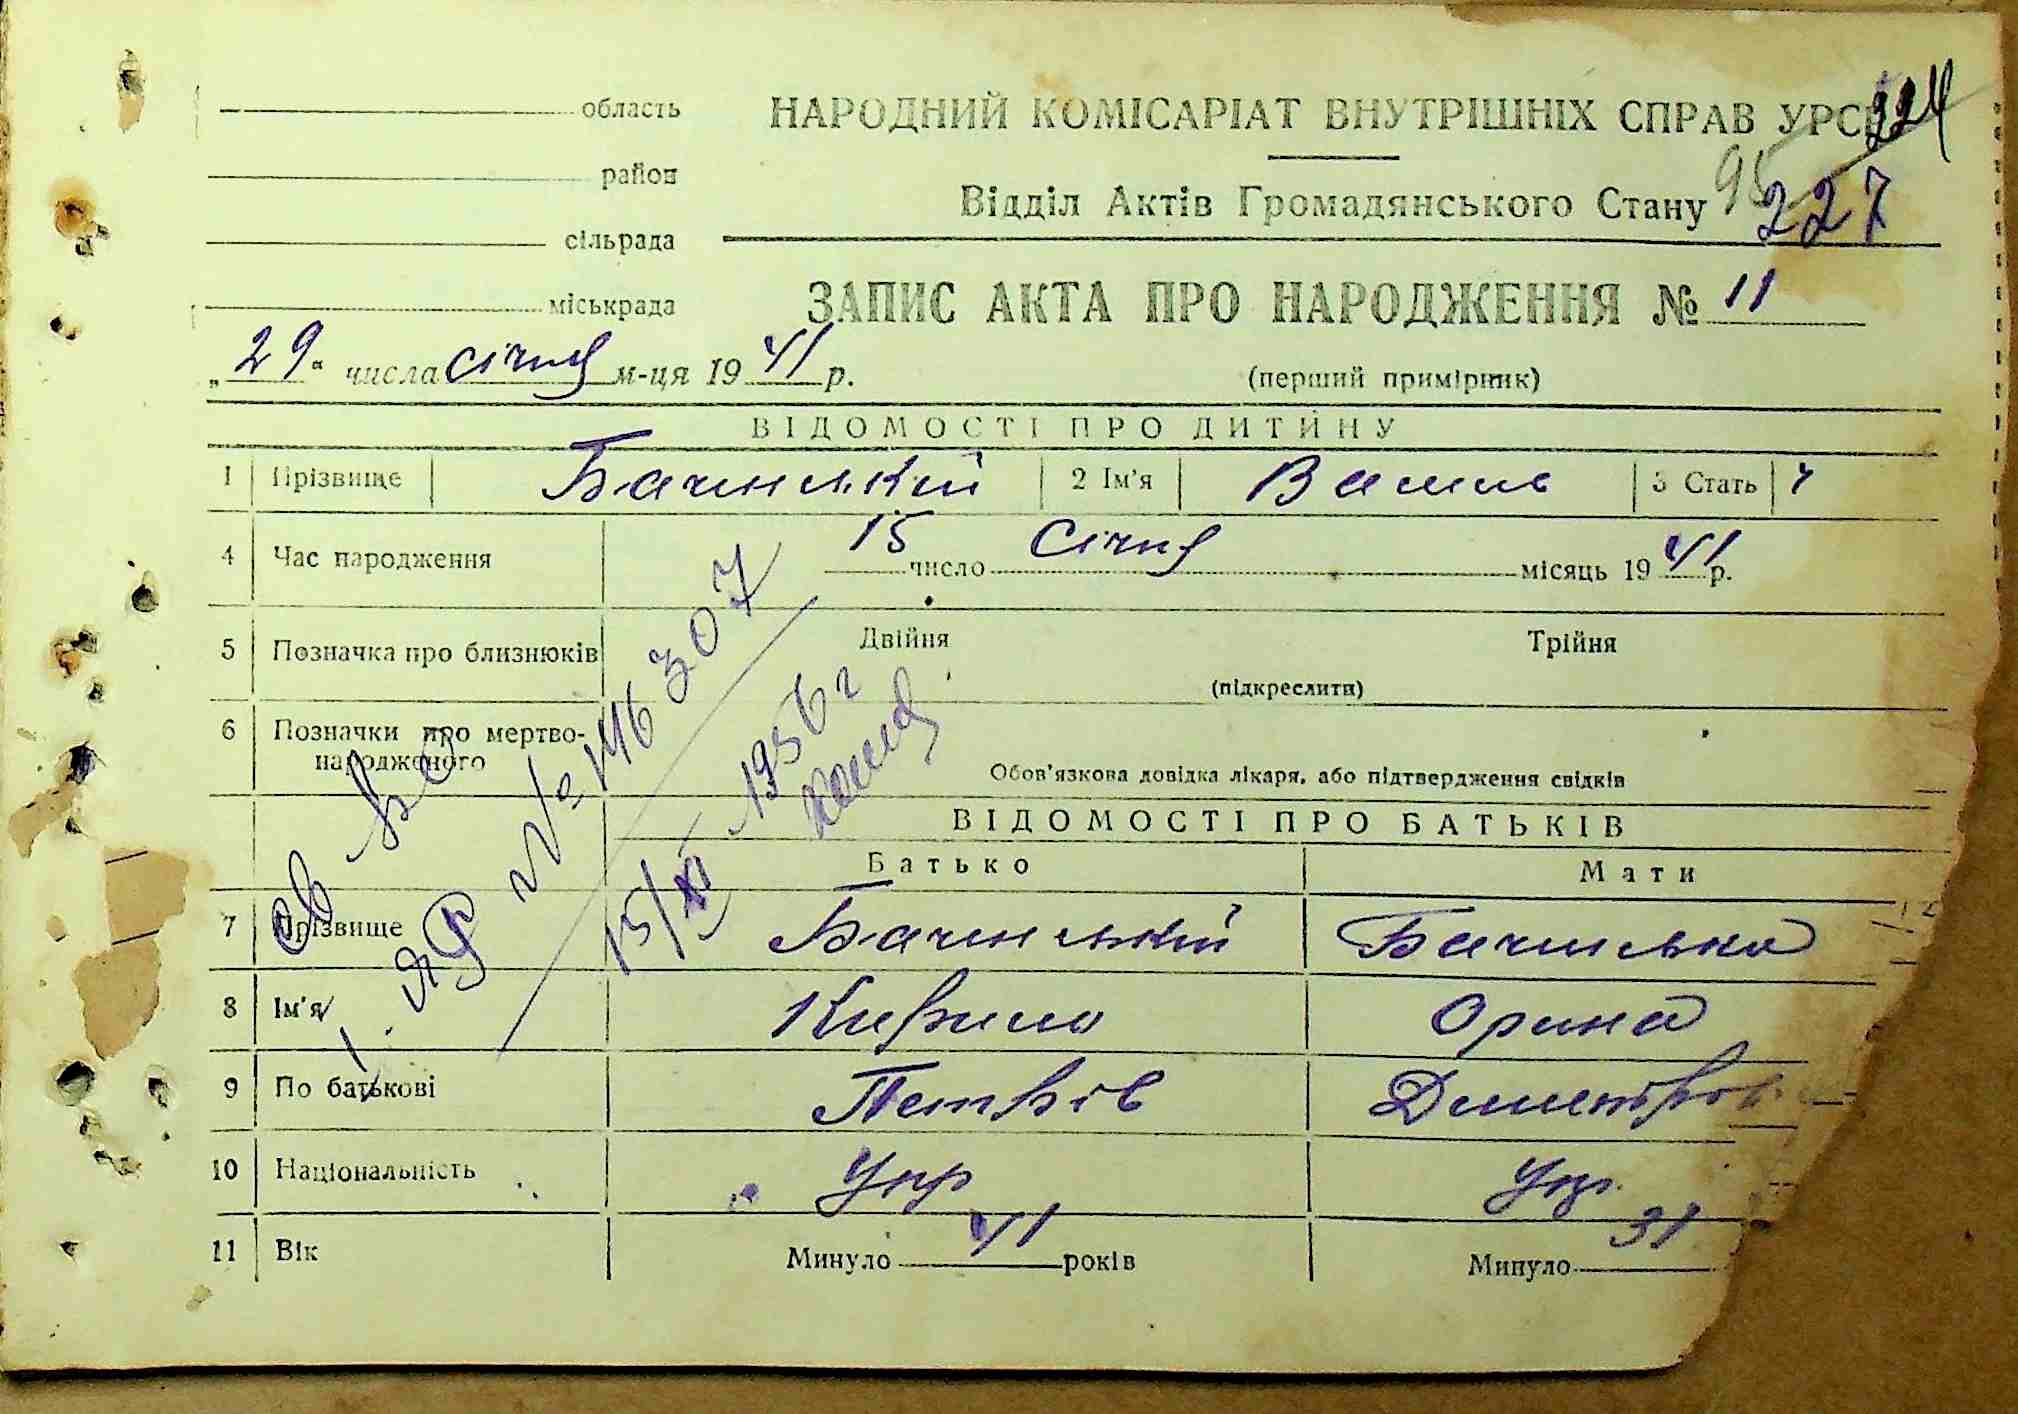 область
район
сільрада
міськрада
НАРОДНИЙ КОМІСАРІАТ ВНУТРІШНІХ СПРАВ УРСР
224
Відділ Актів Громадянського Стану
95
227
ЗАПИС АКТА ПРО НАРОДЖЕННЯ № 11
„29" числа січня м-ця 1941 р.
(перший примірник)
ВІДОМОСТІ ПРО ДИТИНУ
1 Прізвище Бачинський 2 Ім'я Василь 3 Стать ч
4 Час народження 15 число Січня місяць 1941 р.
5 Позначка про близнюків Двійня Трійня
(підкреслити)
6 Позначки про мертво-
народженого
Обов'язкова довідка лікаря, або підтвердження свідків
св во
I. ЯР № 146307
15/XI 1956 г
ВІДОМОСТІ ПРО БАТЬКІВ
Батько Мати
7 Прізвище Бачинський Бачинська
8 Ім'я Кирило Орина
9 По батькові Петрів
10 Національність Укр Укр.
11 Вік Минуло 41 років Минуло 31